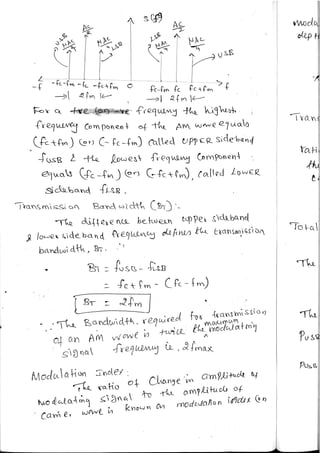 S(f)
Ac/2
Ac/2
mAc/4
mAc/4
mAc/4
mAc/4
USB
LSB
LSB
USB
-f -fc-fm -fc -fc+fm 0 fc-fm fc fc+fm f
2fm
2fm
For a frequency the highest
frequency component of the AM wave equals
(fc+fm) (or) (-fc-fm) called UPPER Sideband
fUSB & the lowest frequency component
equals (fc-fm) (or) (-fc+fm), called LOWER
Sideband fLSB.
Transmission Band width (BT):
The difference between upper sideband
& lower sideband frequency defines the transmission
bandwidth, BT.
BT = fUSB - fLSB
= fc+fm - (fc-fm)
BT = 2fm
∴ The Bandwidth required for transmission
of an AM wave is twice the maximum modulating
signal frequency ie, 2fmax
Modulation Index:
The ratio of Change in amplitude of
modulating signal to the amplitude of
Carrier wave is known as modulation index (or)